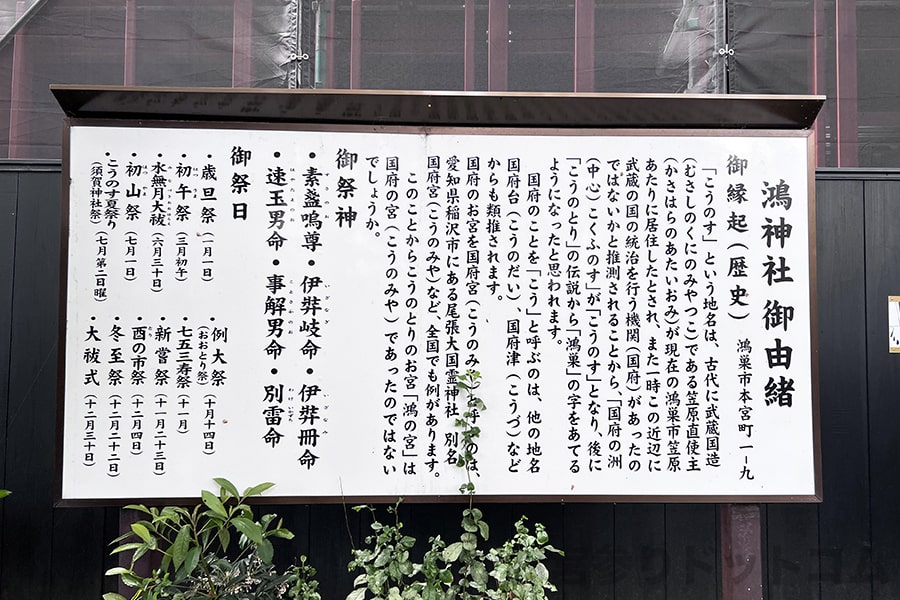 鴻神社 御由緒
御縁起(歴史) 鴻巣市本宮町一ー九
「こうのす」という地名は、古代に武蔵国造
(むさしのくにのみやつこ)である笠原直使主
(かさはらのあたいおみ)が現在の鴻巣市笠原
あたりに居住したとされ、また一時この近辺に
武蔵の国の統治を行う機関(国府)があったの
ではないかと推測されることから、「国府の洲
(中心)こくふのす」が「こうのす」となり、後に
「こうのとり」の伝説から「鴻巣」の字をあてる
ようになったと思われます。
国府のことを「こう」と呼ぶのは、他の地名
国府台(こうのだい)、国府津(こうづ)など
からも類推されます。
国府のお宮を国府宮(こうのみや)と呼ぶのは、
愛知県稲沢市にある尾張大国霊神社 別名
国府宮(こうのみや)など、全国でも例があります。
このことからこうのとりのお宮「鴻の宮」は
国府の宮(こうのみや)であったのではない
でしょうか。
御祭神
・素盞嗚尊・伊弉岐命・伊弉冊命
・速玉男命・事解男命・別雷命
御祭日
・歳旦祭(一月一日)
・初午祭(三月初午)
・水無月大祓(六月三十日)
・初山祭(七月一日)
・こうのす夏祭り(七月第二日曜)
(須賀神社祭)
・例大祭(十月十四日)
(おおとり祭)
・七五三寿祭(十一月)
・新嘗祭(十一月二十三日)
・酉の市祭(十二月四日)
・冬至祭(十二月二十二日)
・大祓式(十二月三十日)